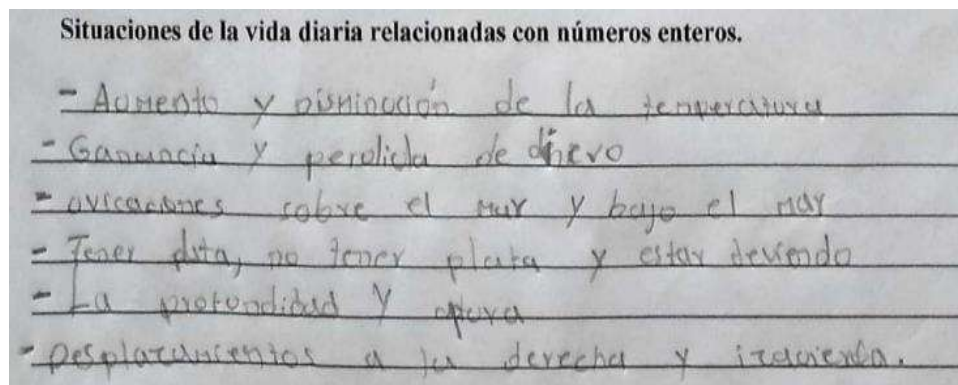 Situaciones de la vida diaria relacionadas con números enteros.
- Aumento y disminución de la temperatura
- Ganancia y perdida de dinero
- ovicaciones sobre el mar y bajo el mar
- Tener plata, no tener plata y estar deviendo
- La profundidad y altura
- Desplazamientos a la derecha y izquierda.